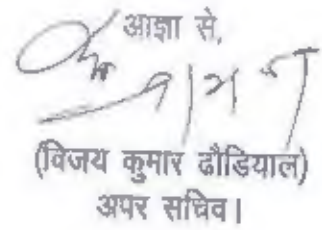 आज्ञा से,
(विजय कुमार ढौडियाल)
अपर सचिव।